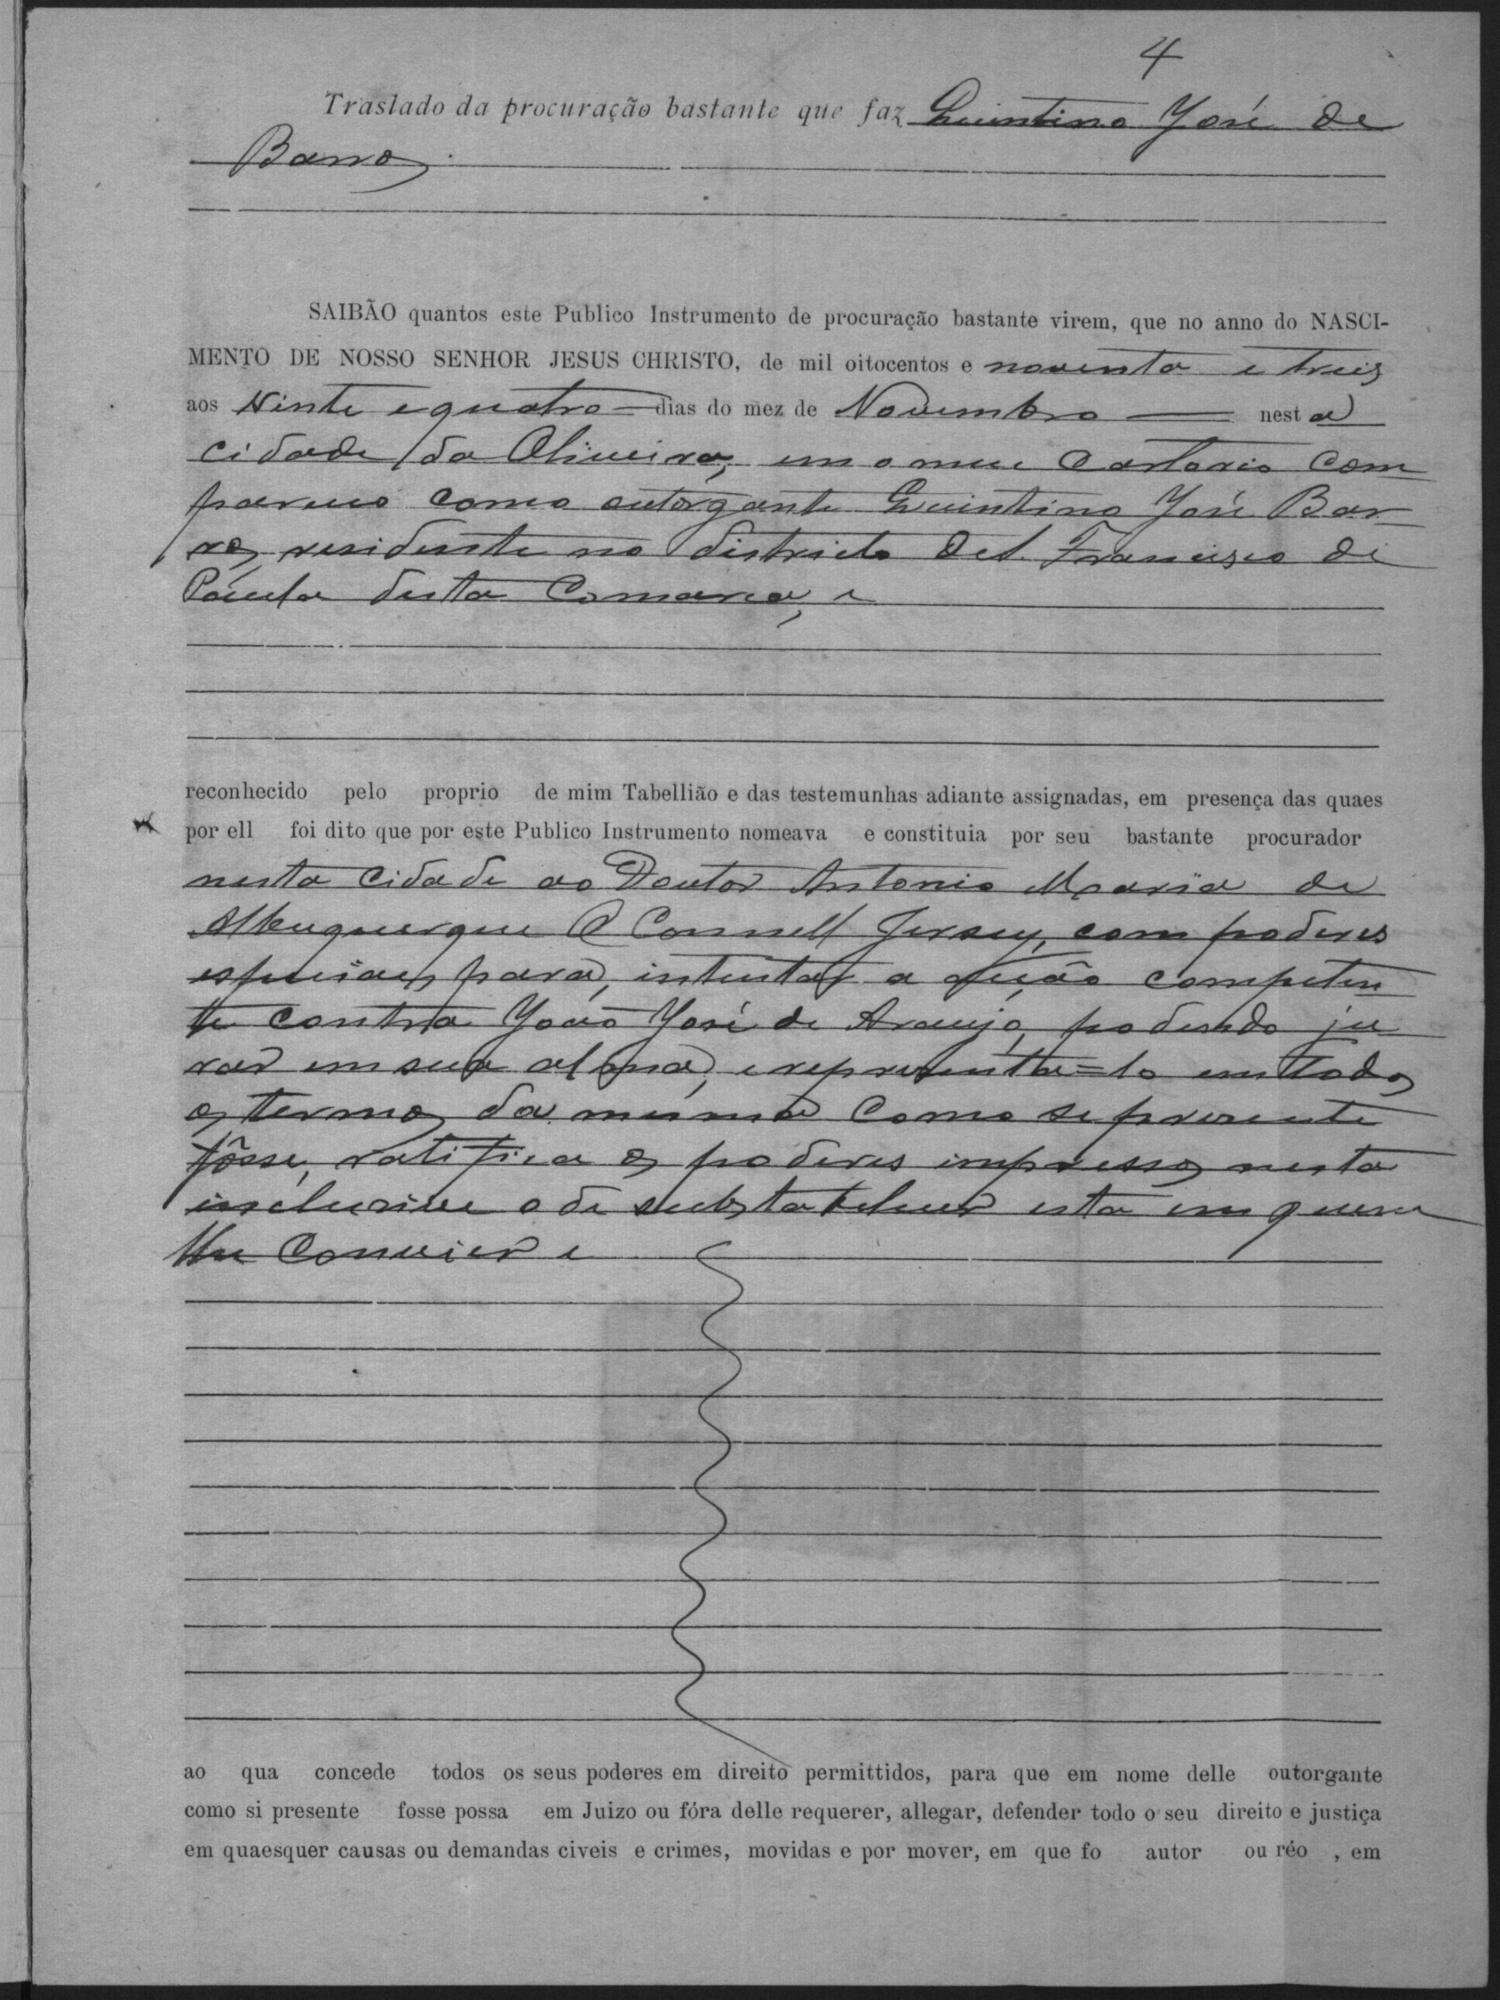 4
Traslado da procuração bastante que faz Quintino José de
Barros.
SAIBÃO quantos este Publico Instrumento de procuração bastante virem, que no anno do NASCI-
MENTO DE NOSSO SENHOR JESUS CHRISTO, de mil oitocentos e noventa e treis
aos vinte e quatro dias do mez de Novembro nesta
cidade da Oliveira, em o meu Cartorio com
pareceo como outorgante Quintino José Bar
ros, residente no districto de S. Francisco de
Paula desta Comarca, e
reconhecido pelo proprio de mim Tabellião e das testemunhas adiante assignadas, em presença das quaes
por ell foi dito que por este Publico Instrumento nomeava e constituia por seu bastante procurador
nesta cidade ao Doutor Antonio Maria de
Albuquerque O Connell Jersey, com poderes
especiaes para, intentar a acção competen
te contra João José de Araujo, podendo ju
rar em sua alma, e representa=lo em todos
os termos da mesma como se presente
fôsse, ratifica os poderes impressos nesta
inclusive o de substabelecer esta em quem
lhe convier e
ao qua concede todos os seus poderes em direito permittidos, para que em nome delle outorgante
como si presente fosse possa em Juizo ou fóra delle requerer, allegar, defender todo o seu direito e justiça
em quaesquer causas ou demandas civeis e crimes, movidas e por mover, em que fo autor ou réo , em